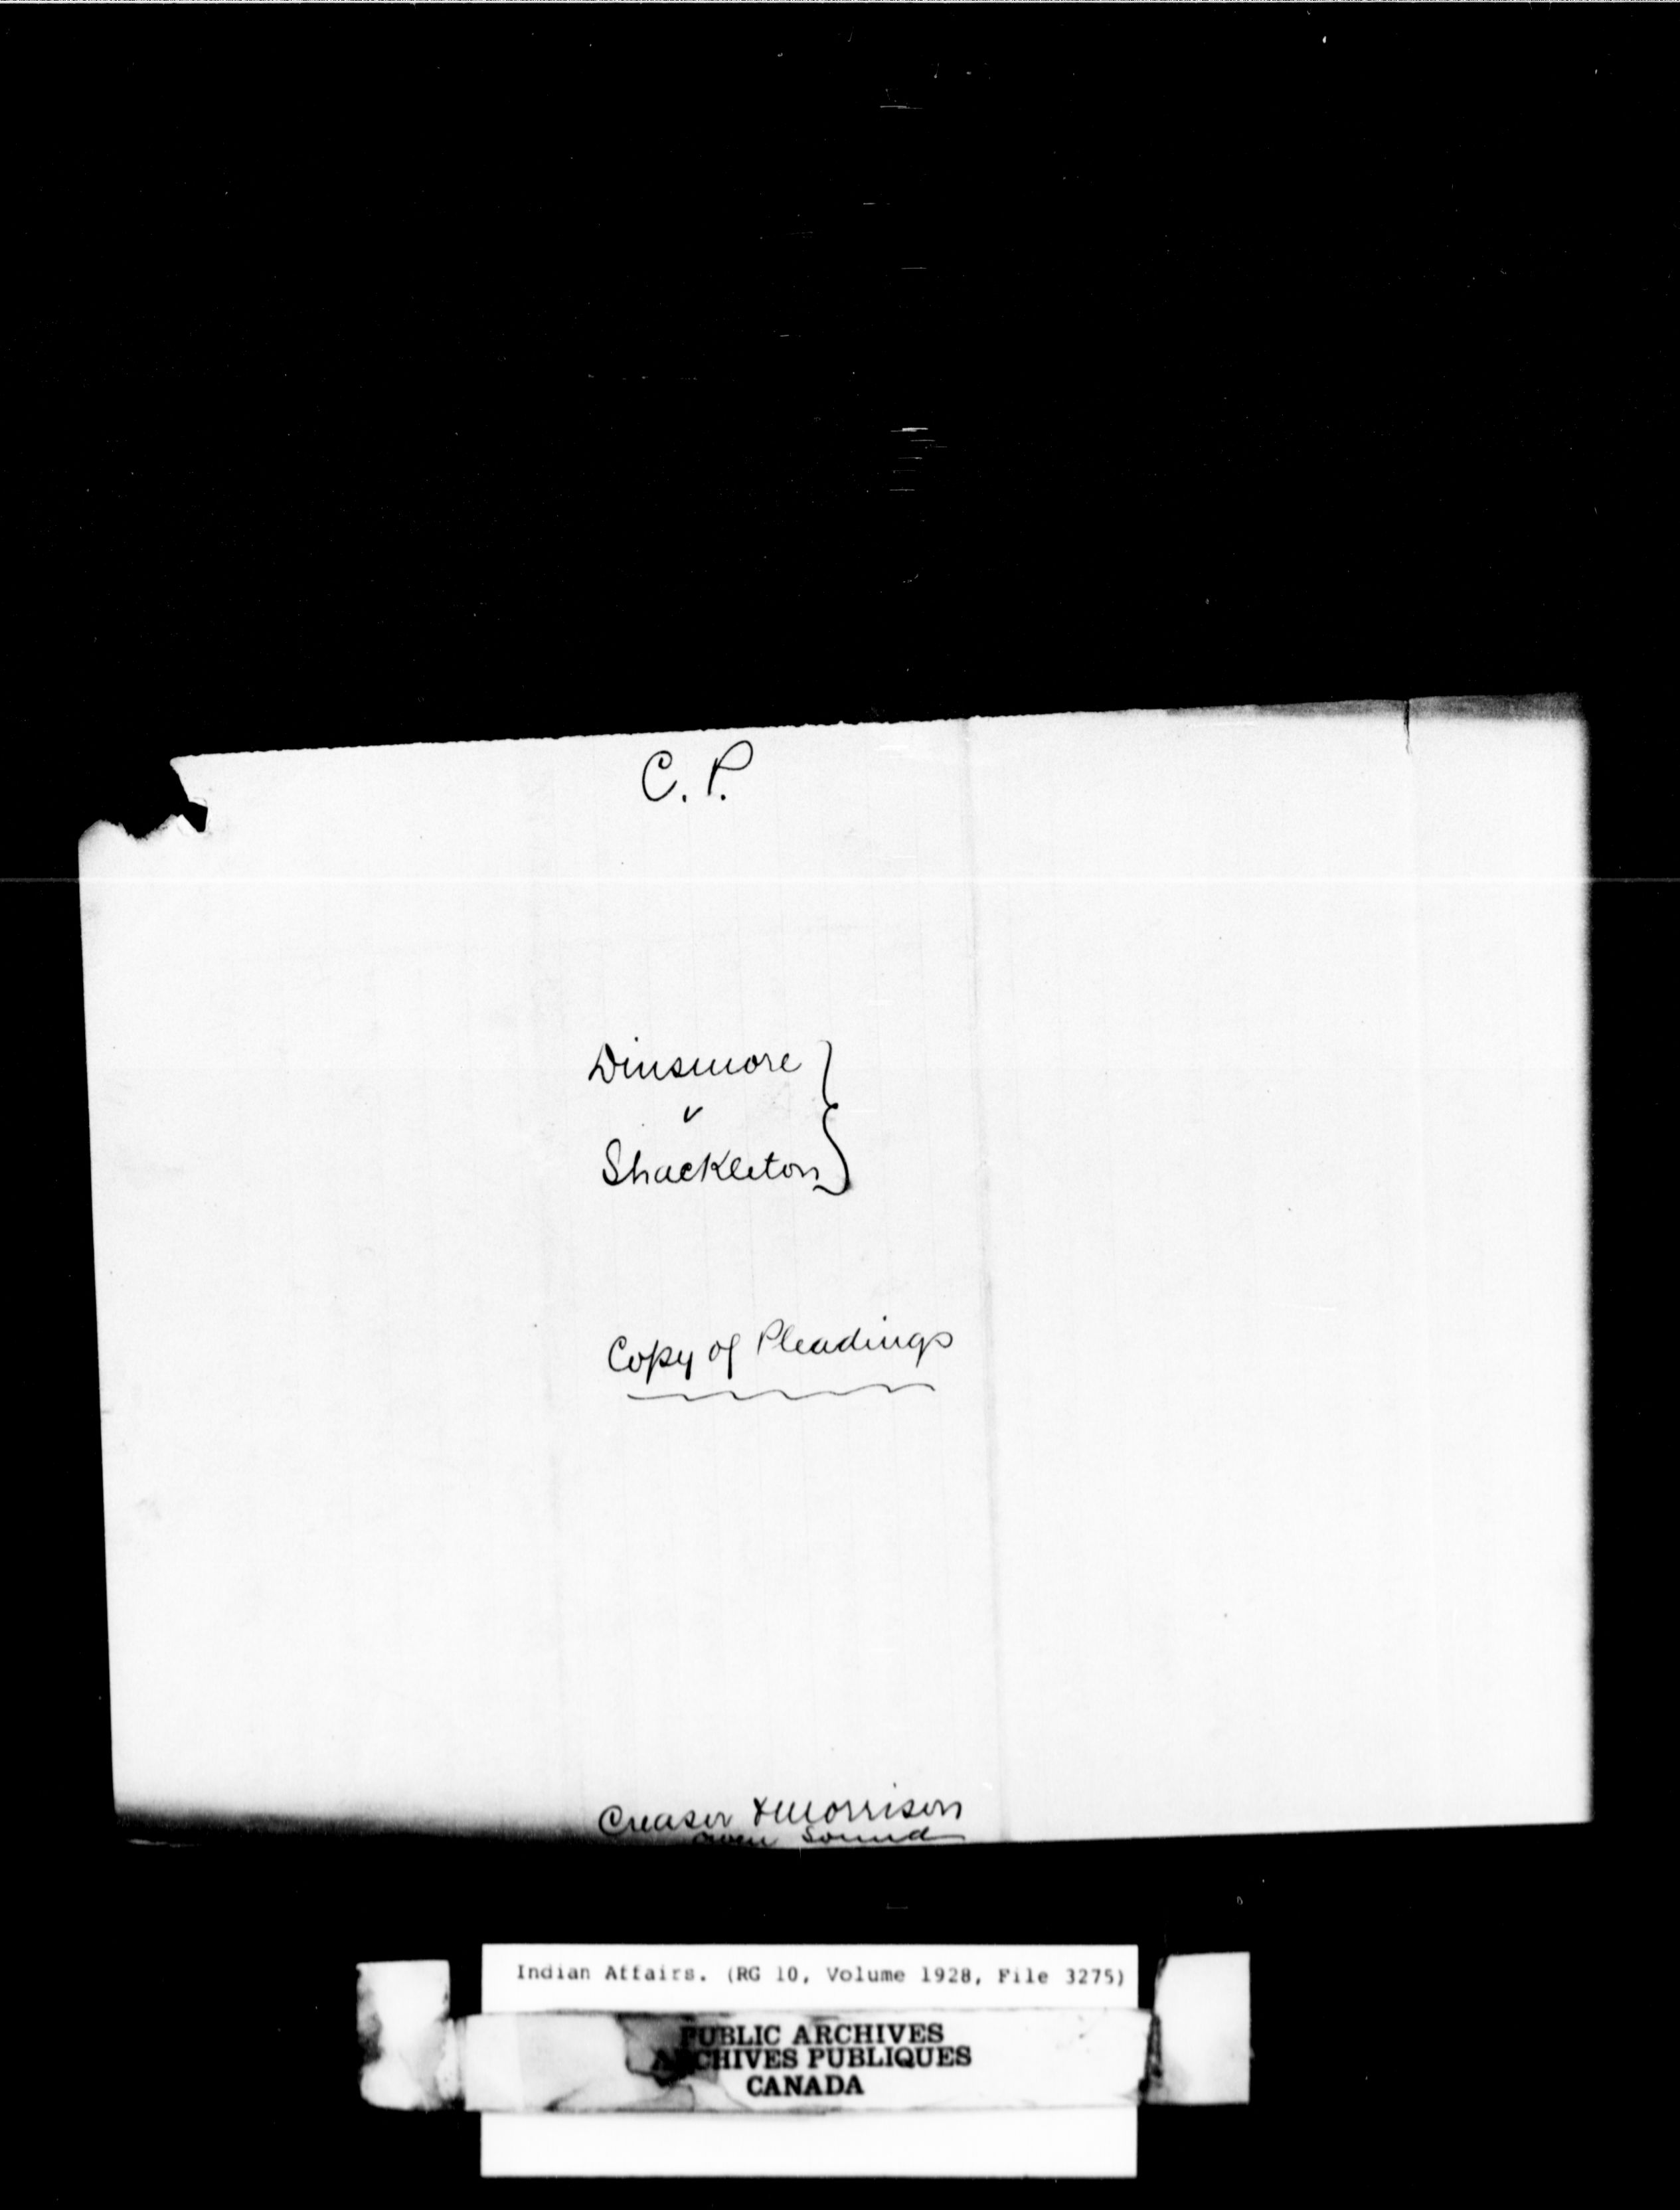 C. P.
Dinsmore
v
Shackleton
Copy of Pleadings
Creasor & Morrison
Owen Sound
Indian Affairs. (RG 10, Volume 1928, File 3275)
PUBLIC ARCHIVES
ARCHIVES PUBLIQUES
CANADA